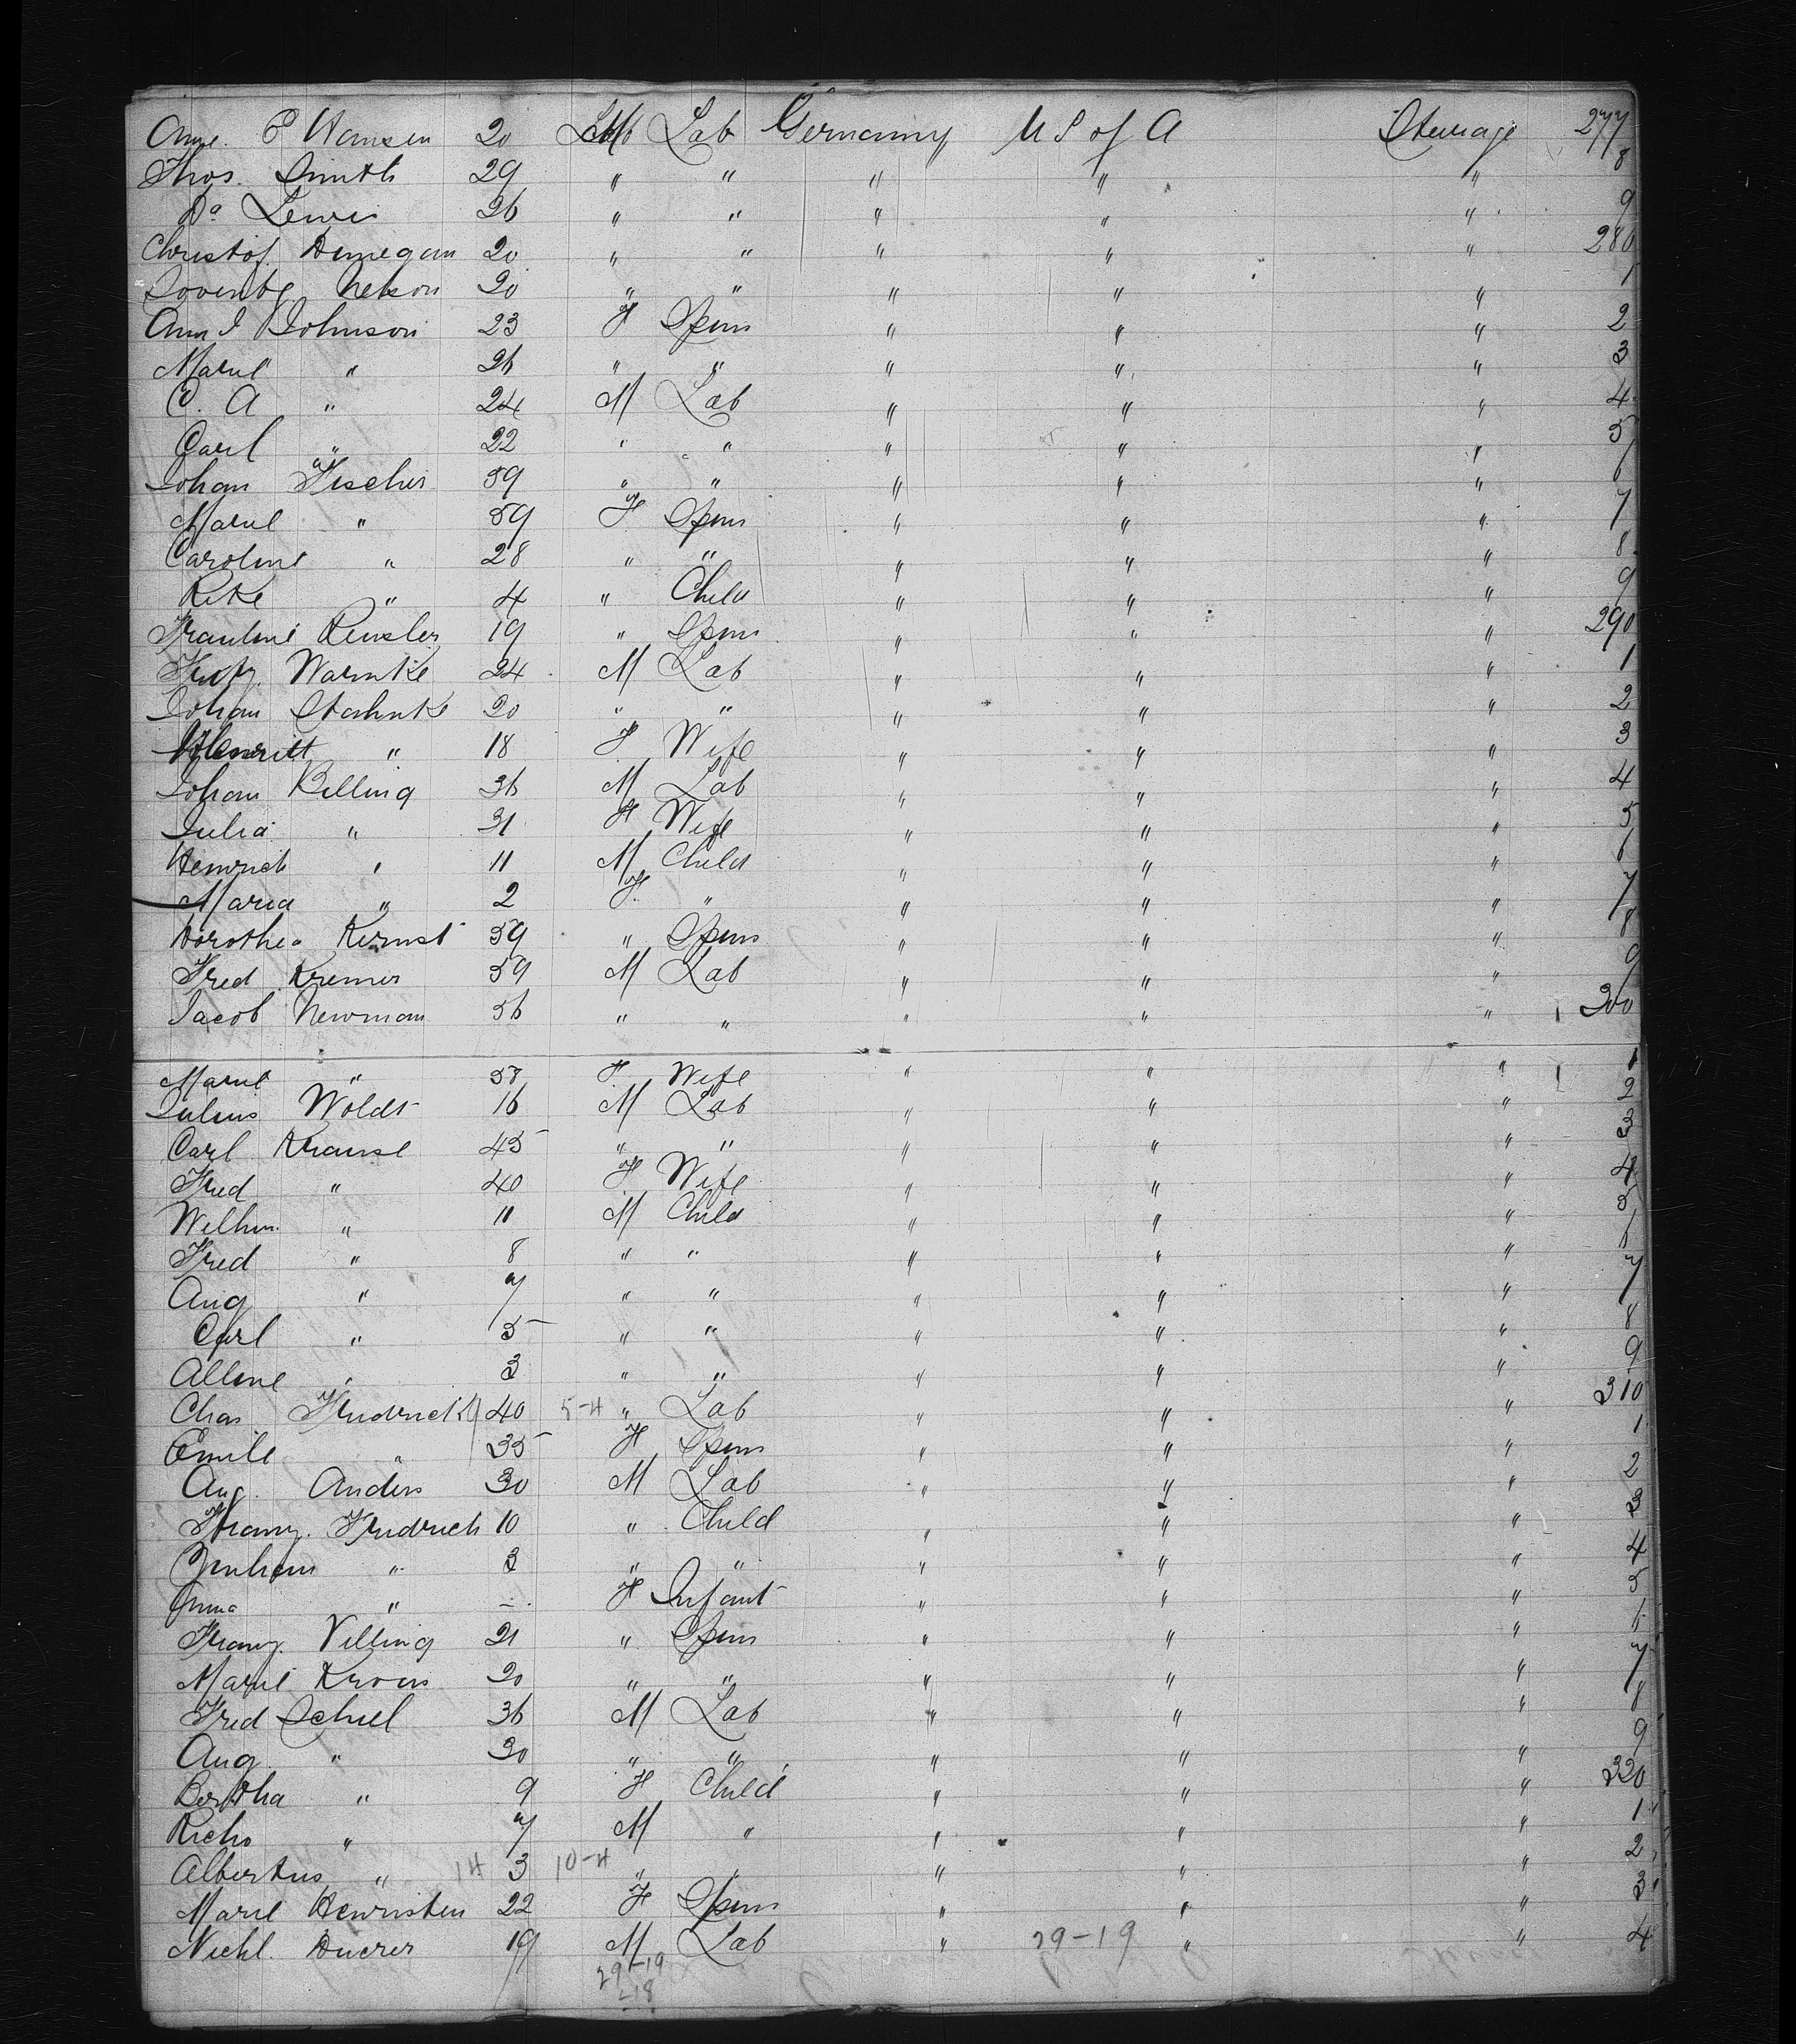 Anne. P Hansen 20 M Lab Germany U S of A Steerage 277
Thos. Smith 29 " " " " " 8
Do Lewis 26 " " " " " 9
Christof. Hennegan 20 " " " " " 280
Nelson 20 " " " " " 1
Ann I Johnson 23 F Spins " " " 2
Marie " 26 " " " " " 3
C. A " 24 M Lab " " " 4
Carl " 22 " " " " " 5
Johan Fischer 59 " " " " " 6
Marie " 59 F Spins " " " 7
Caroline " 28 " " " " " 8
Rike " 4 " Child " " " 9
19 " Spins " " " 290
Warnke 24 M Lab " " " 1
Johan Stahnke 20 " " " " " 2
Henriett " 18 F Wife " " " 3
Johan Billing 36 M Lab " " " 4
Julia " 31 F Wife " " " 5
Heinrich " 11 M Child " " " 6
Maria " 2 F " " " " 7
Dorothea Kernst 59 " Spins " " " 8
Fred Kremer 59 M Lab " " " 9
Jacob Newman 56 " " " " " 300
Marie " 58 F Wife " " " 1
Julius Woldt 16 M Lab " " " 2
Carl Krause 45 " " " " " 3
Fried " 40 F Wife " " " 4
Wilhm. " 11 M Child " " " 5
Fred " 8 " " " " " 6
Aug " 7 " " " " " 7
Carl " 5 " " " " " 8
Alline " 3 " " " " " 9
Chas Friedrich 40 5-4 " Lab " " " 310
Emile " 35 F Spins " " " 1
Aug. Anders 30 M Lab " " " 2
Franz. Friedrich 10 " Child " " " 3
" 3 " " " " " 4
" - F Infant " " " 5
Franz. Villing 21 " Spins " " " 6
Marie 20 " " " " " 7
Fred Schiel 36 M Lab " " " 8
Aug " 30 " " " " " 9
Bertha " 9 F Child " " " 320
Richd " 7 M " " " " 1
Albertus " 14 3 10-4 " " " " " 2
Marie Henristen 22 F Spins " " " 3
19 M Lab " 29-19 " " 4
29-19
-18